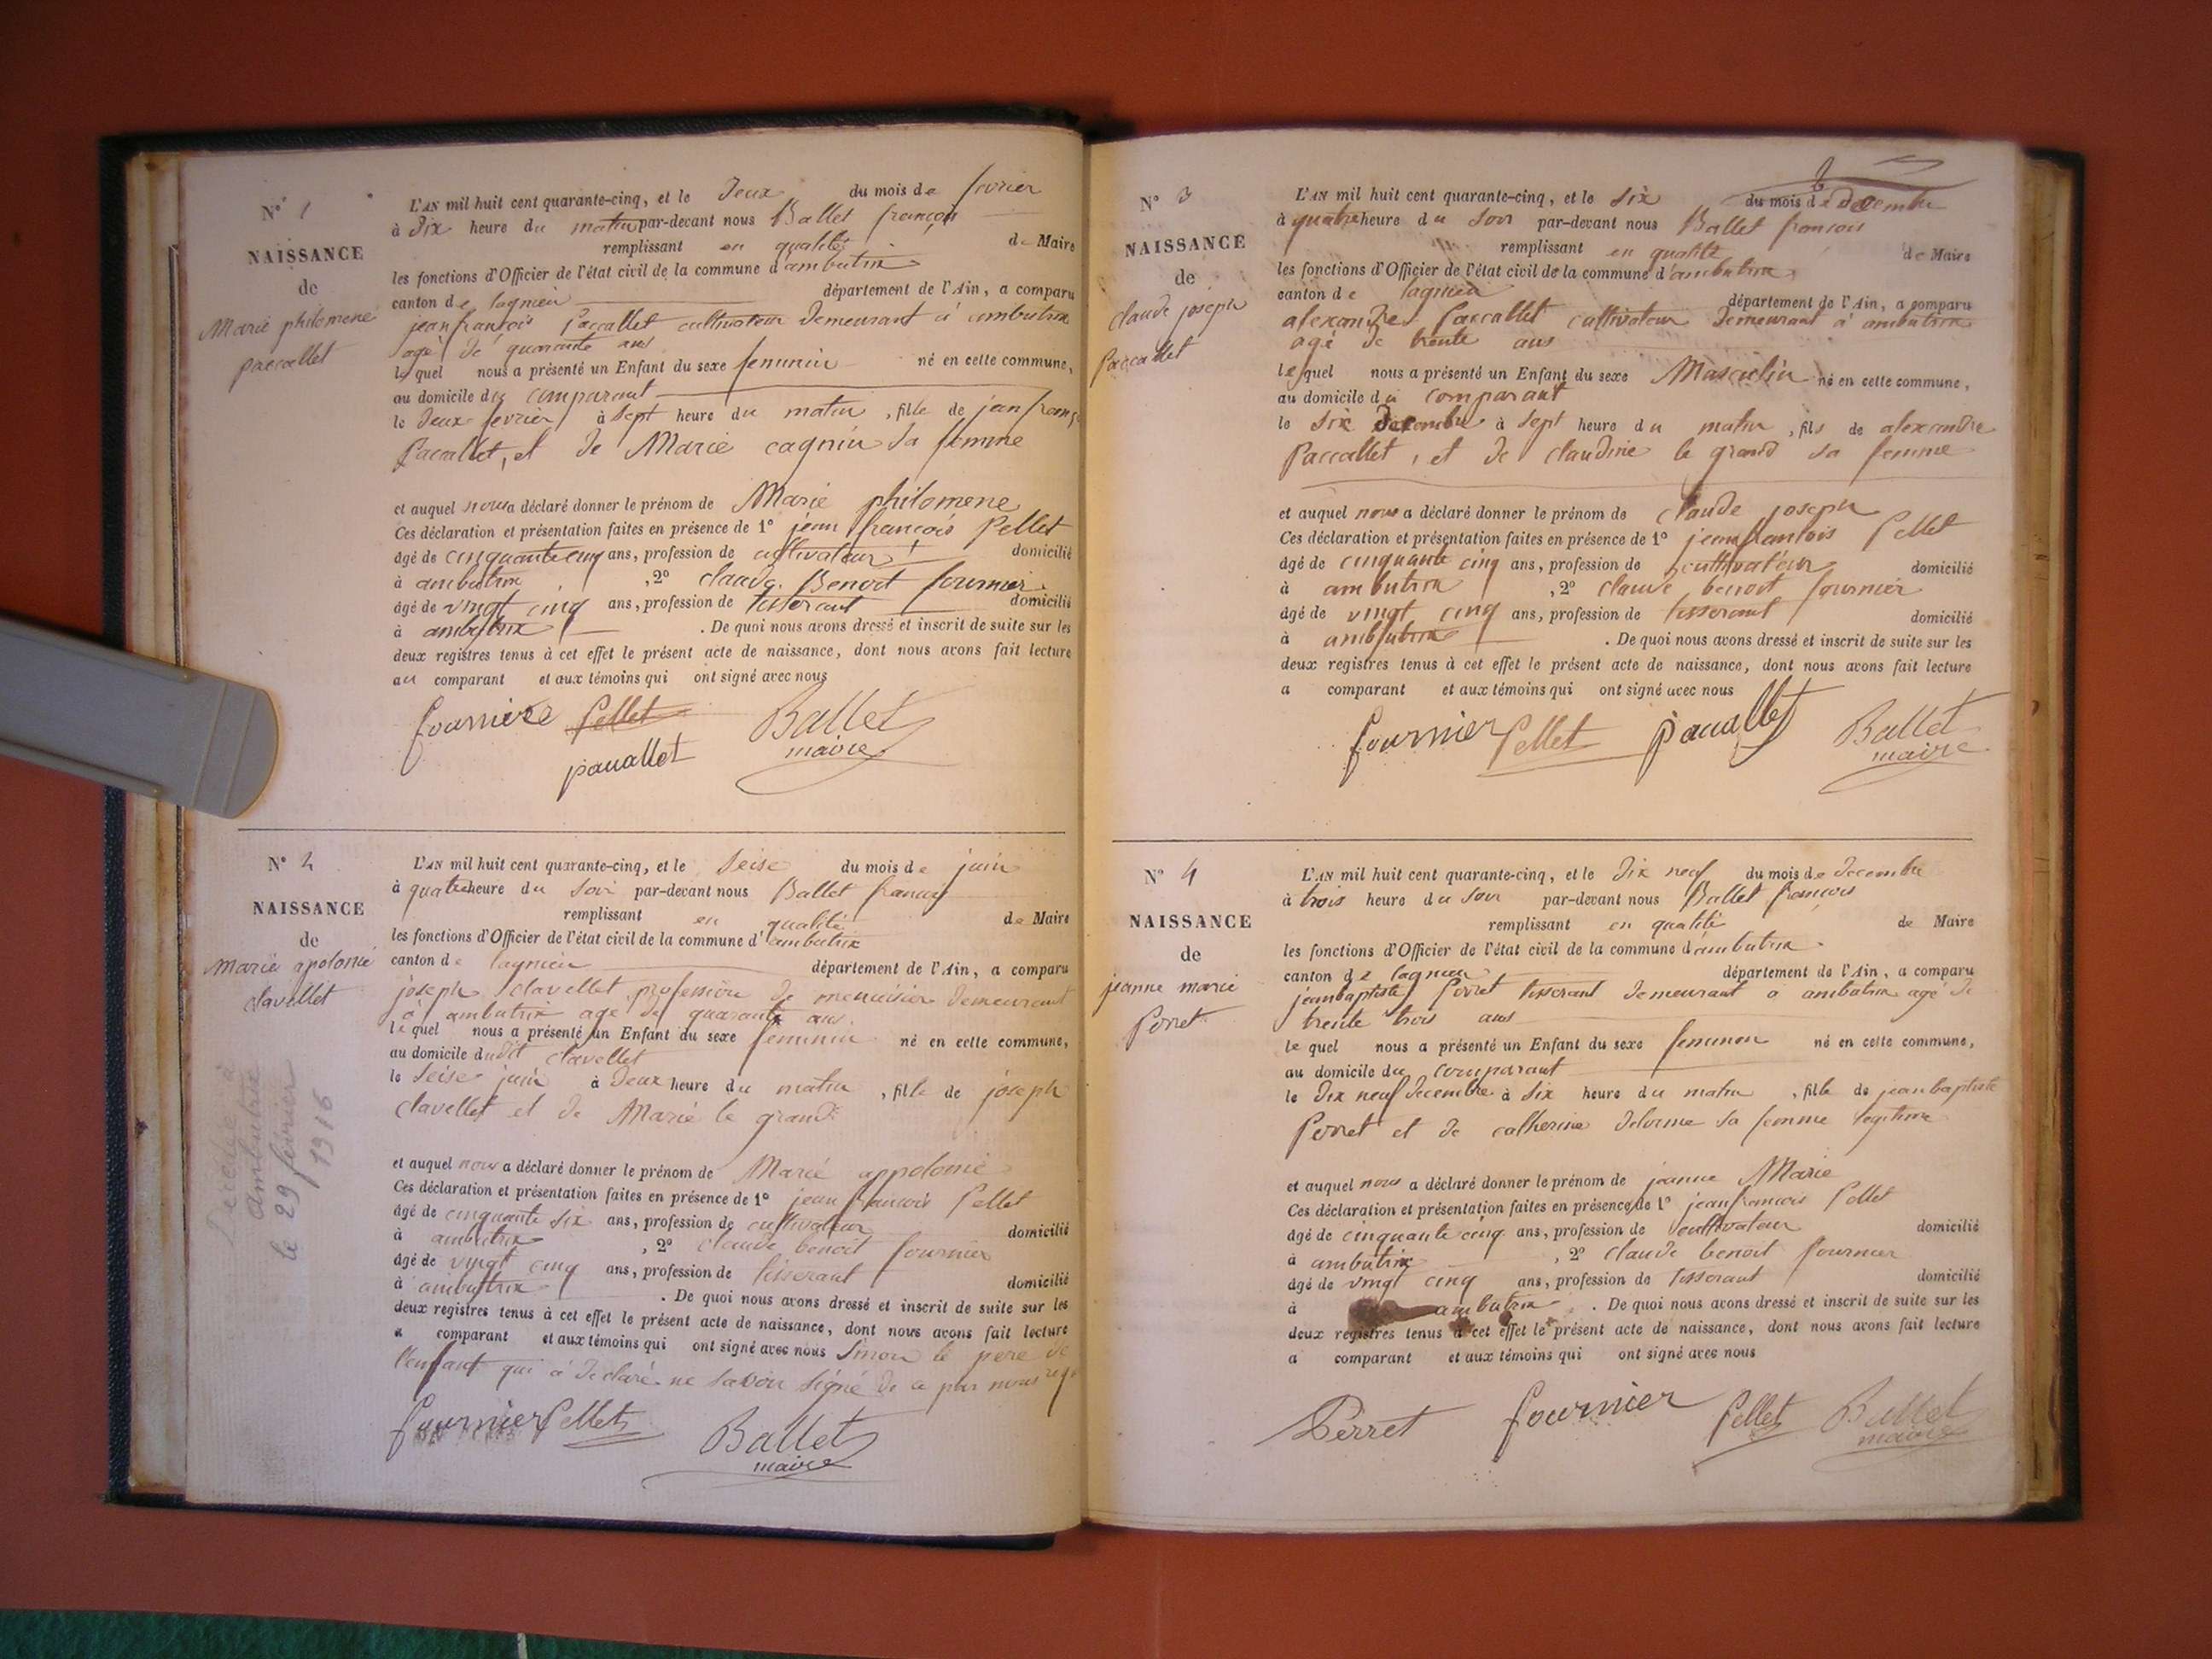 N° 1
NAISSANCE
de
Marie philomene
paccallet
L'AN mil huit cent quarante-cinq, et le Deux du mois de fevrier
à Dix heure du matin par-devant nous Ballet françois
remplissant en qualité de Maire
les fonctions d'Officier de l'état civil de la commune d'ambutrix
canton de lagnieu département de l'Ain, a comparu
jean françois paccallet cultivateur Demeurant à ambutrix
agé De quarante ans
lequel nous a présenté un Enfant du sexe feminin né en cette commune,
au domicile du comparant
le Deux fevrier à Sept heure du matin, fille de jean françois
Paccallet, et De Marie cagnin Sa femme
et auquel nous a déclaré donner le prénom de Marie philomene
Ces déclaration et présentation faites en présence de 1° jean françois Pellet
âgé de cinquante cinq ans, profession de cultivateur domicilié
à ambutrix, 2° claude Benoit fournier
âgé de vingt cinq ans, profession de tisserant domicilié
à ambutrix. De quoi nous avons dressé et inscrit de suite sur les
deux registres tenus à cet effet le présent acte de naissance, dont nous avons fait lecture
au comparant et aux témoins qui ont signé avec nous
fournier Pellet Ballet
paccallet maire
N° 2
NAISSANCE
de
Marie apolonie
clavellet
Decedée à
Ambutrix
le 29 février
1916
L'AN mil huit cent quarante-cinq, et le Seise du mois de juin
à quatre heure du Soir par-devant nous Ballet françois
remplissant en qualité de Maire
les fonctions d'Officier de l'état civil de la commune d'ambutrix
canton de lagnieu département de l'Ain, a comparu
joseph clavellet profession De menuisier Demeurant
à ambutrix age De quarante ans
lequel nous a présenté un Enfant du sexe feminin né en cette commune,
au domicile dudit clavellet
le Seise juin à Deux heure du matin, fille de joseph
clavellet et De Marie le grand
et auquel nous a déclaré donner le prénom de Marie appolonie
Ces déclaration et présentation faites en présence de 1° jean francois Pellet
âgé de cinquante Six ans, profession de cultivateur domicilié
à ambutrix, 2° claude benoit fournier
âgé de vingt cinq ans, profession de tisserant domicilié
à ambutrix. De quoi nous avons dressé et inscrit de suite sur les
deux registres tenus à cet effet le présent acte de naissance, dont nous avons fait lecture
a comparant et aux témoins qui ont signé avec nous Sinon le pere De
l'enfant qui à Declaré ne Savoir Signé De a par nous
fournier Pellet Ballet
maire
N° 3
NAISSANCE
de
claude joseph
Paccallet
L'AN mil huit cent quarante-cinq, et le Six du mois de Decembre
à quatre heure du Soir par-devant nous Ballet francois
remplissant en qualité de Maire
les fonctions d'Officier de l'état civil de la commune d'ambutrix
canton de lagnieu département de l'Ain, a comparu
alexandre Paccallet cultivateur Demeurant à ambutrix
agé De trente ans
lequel nous a présenté un Enfant du sexe Masculin né en cette commune,
au domicile du comparant
le Six Decembre à Sept heure du matin, fils de alexandre
Paccallet, et De claudine le grand Sa femme
et auquel nous a déclaré donner le prénom de claude joseph
Ces déclaration et présentation faites en présence de 1° jean francois Pellet
âgé de cinquante cinq ans, profession de cultivateur domicilié
à ambutrix, 2° claude benoit fournier
âgé de vingt cinq ans, profession de tisserant domicilié
à ambutrix. De quoi nous avons dressé et inscrit de suite sur les
deux registres tenus à cet effet le présent acte de naissance, dont nous avons fait lecture
a comparant et aux témoins qui ont signé avec nous
fournier Pellet paccallet Ballet
maire
N° 4
NAISSANCE
de
jeanne marie
Perret
L'AN mil huit cent quarante-cinq, et le Dix neuf du mois de Decembre
à trois heure du Soir par-devant nous Ballet francois
remplissant en qualité de Maire
les fonctions d'Officier de l'état civil de la commune d'ambutrix
canton de lagnieu département de l'Ain, a comparu
jeanbaptiste Perret tisserant Demeurant a ambutrix agé De
trente trois ans
lequel nous a présenté un Enfant du sexe feminin né en cette commune,
au domicile du comparant
le Dix neuf Decembre à Six heure du matin, fille de jeanbaptiste
Perret et De catherine Delorme Sa femme legitime
et auquel nous a déclaré donner le prénom de jeanne Marie
Ces déclaration et présentation faites en présence de 1° jean francois Pellet
âgé de cinquante cinq ans, profession de cultivateur domicilié
à ambutrix, 2° claude benoit fournier
âgé de vingt cinq ans, profession de tisserant domicilié
à ambutrix. De quoi nous avons dressé et inscrit de suite sur les
deux registres tenus à cet effet le présent acte de naissance, dont nous avons fait lecture
a comparant et aux témoins qui ont signé avec nous
Perret fournier Pellet Ballet
maire